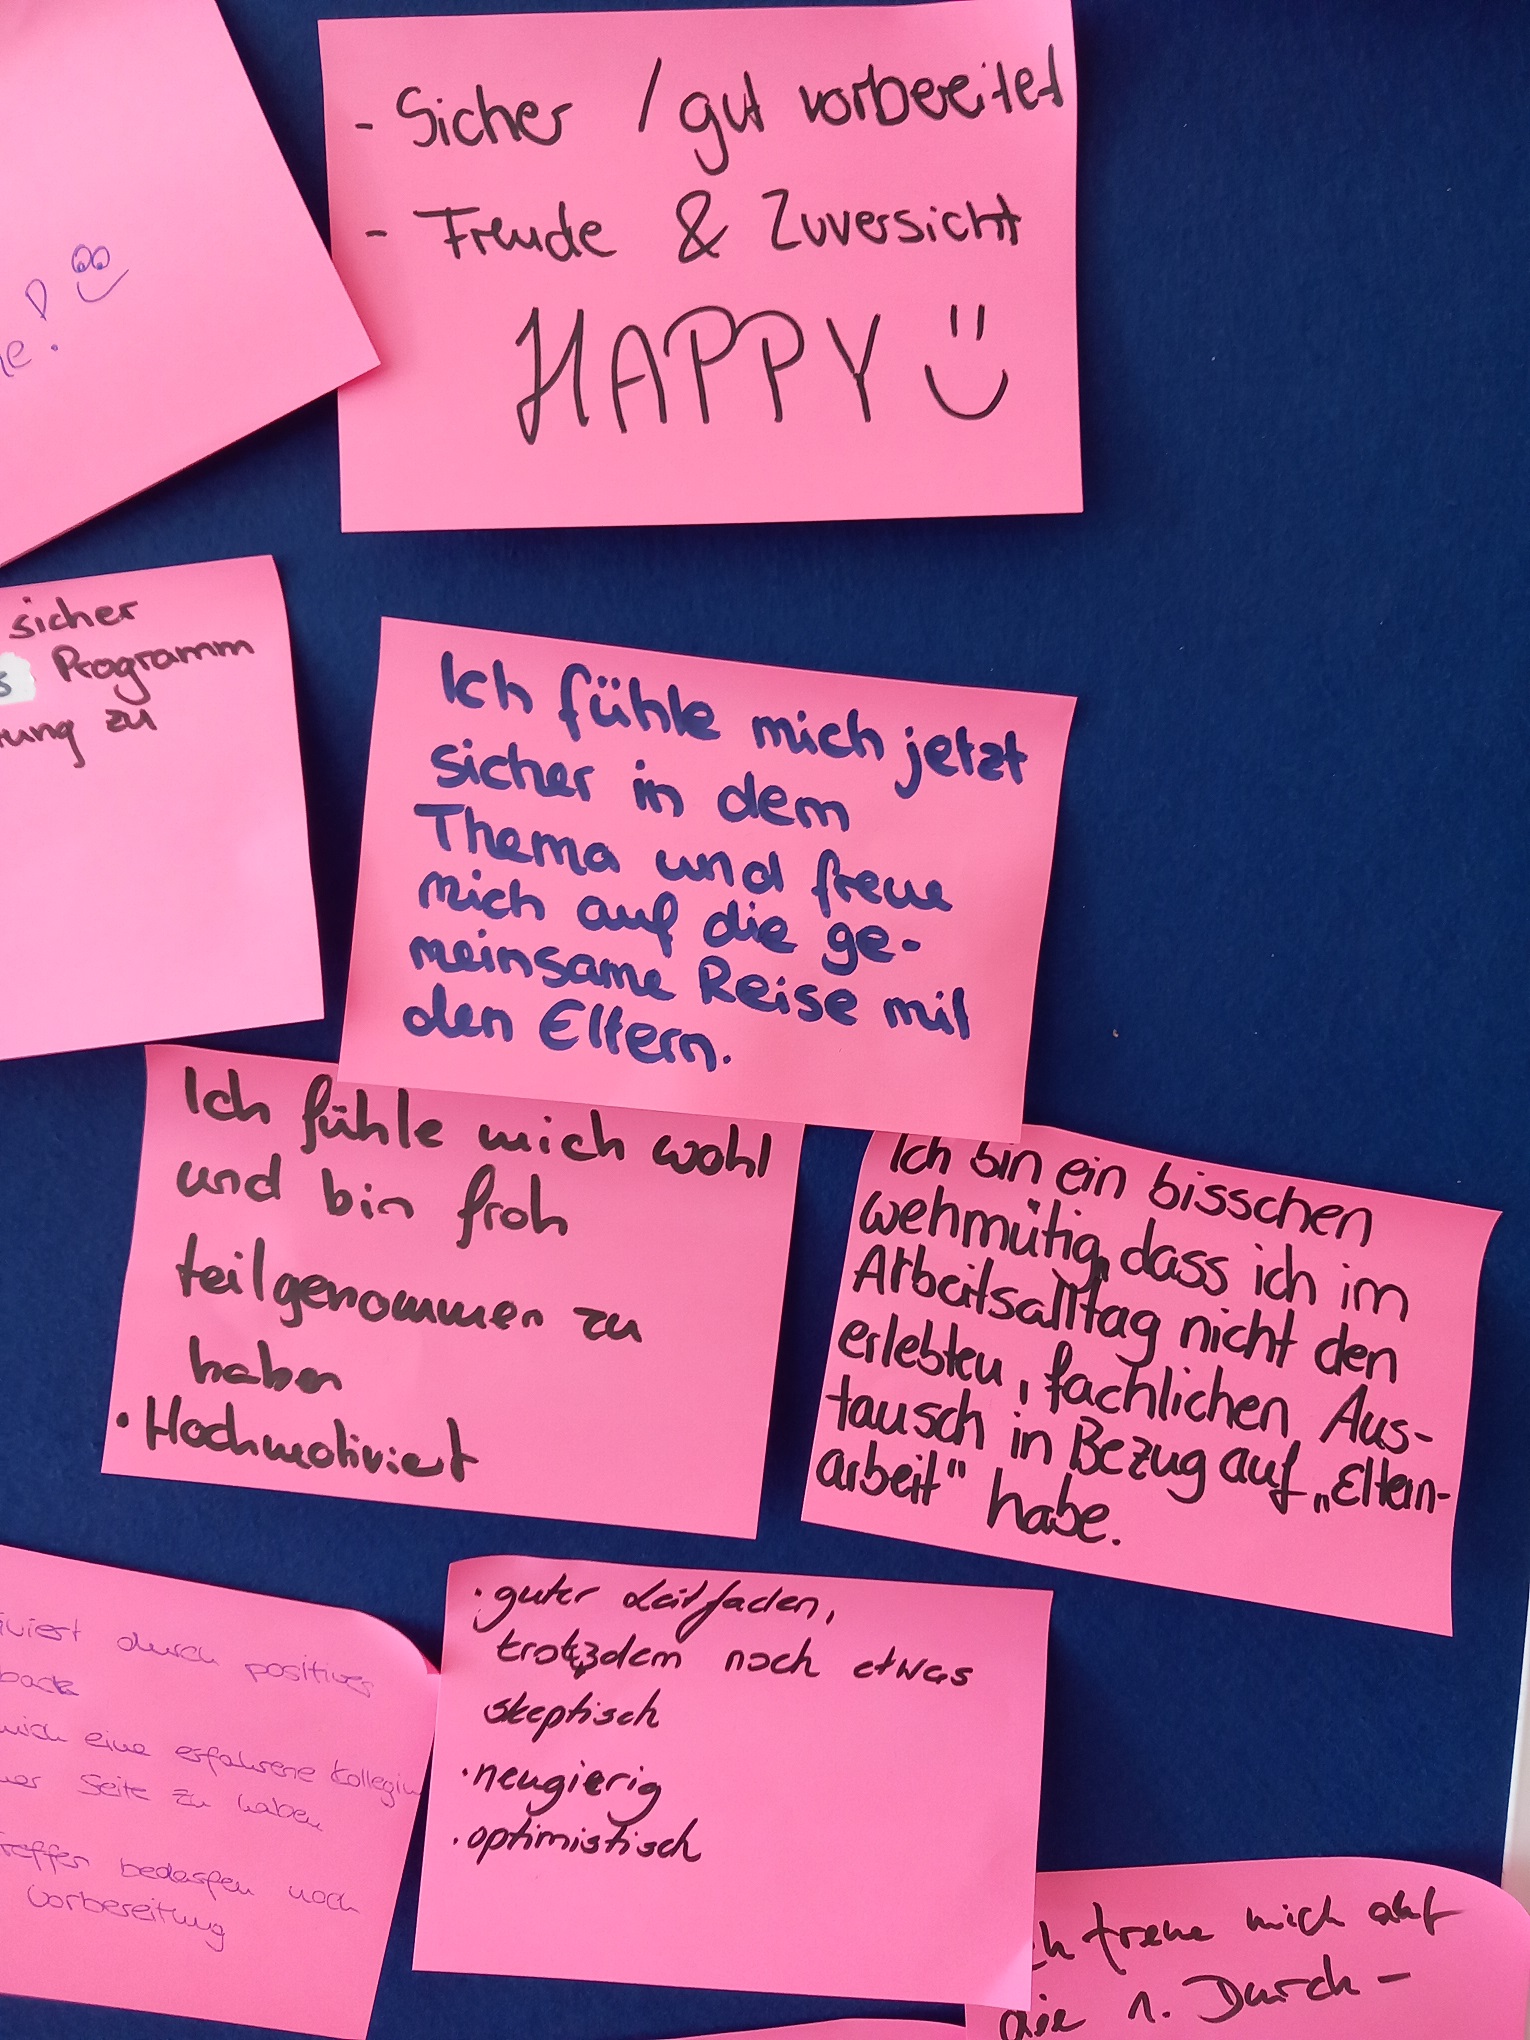 e.
- Sicher / gut vorbereitet
- Freude & Zuversicht
HAPPY
sicher
s Programm
tung zu
Ich fühle mich jetzt
sicher in dem
Thema und freue
mich auf die ge-
meinsame Reise mit
den Eltern.
Ich fühle mich wohl
und bin froh
teilgenommen zu
haben
• Hochmotiviert
Ich bin ein bisschen
wehmütig, dass ich im
Arbeitsalltag nicht den
erlebten, fachlichen Aus-
tausch in Bezug auf „Eltern-
arbeit" habe.
viert durch positives
back
mich eine erfahrene Kollegin
ner Seite zu haben
reffen bedarfen noch
Vorbereitung
• guter Leitfaden,
trotzdem noch etwas
skeptisch
• neugierig
• optimistisch
ch freue mich auf
die 1. Durch-